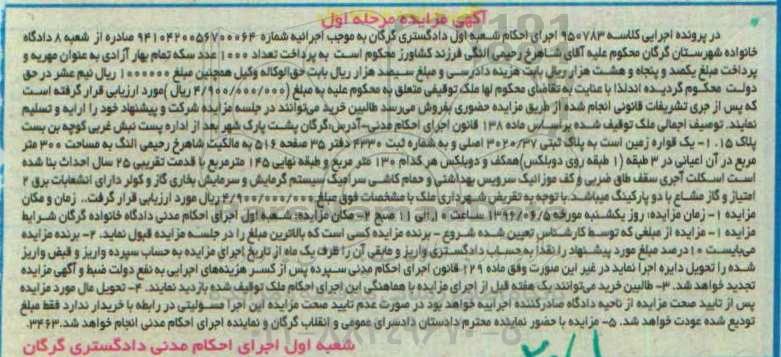 آگهی مزایده مرحله اول
در پرونده اجرایی کلاسه ۹۵۰۷۸۳ اجرای احکام شعبه اول دادگستری گرگان به موجب اجرائیه شماره ۹۴۱۰۴۲۰۰۵۶۷۰۰۰۶۴ صادره از شعبه ۸ دادگاه
خانواده شهرستان گرگان محکوم علیه آقای شاهرخ رحیمی النگی فرزند کشاورز محکوم است به پرداخت تعداد ۱۰۰۰ عدد سکه تمام بهار آزادی به عنوان مهریه و
پرداخت مبلغ یکصد و پنجاه و هشت هزار ریال بابت هزینه دادرسی و مبلغ سیصد هزار ریال بابت حق الوکاله وکیل همچنین مبلغ ۱۰۰۰۰۰۰ ریال نیم عشر در حق
دولت محکوم گردیده اندلذا با عنایت به تقاضای محکوم لها ملک توقیفی متعلق به محکوم علیه به مبلغ (۴/۹۰۰/۰۰۰/۰۰۰ ریال )مورد ارزیابی قرار گرفته است
که پس از جری تشریفات قانونی انجام شده از طریق مزایده حضوری بفروش می‌رسد طالبین خرید می‌توانند در جلسه مزایده شرکت و پیشنهاد خود را ارایه و تسلیم
نمایند. توصیف اجمالی ملک توقیف شده براساس ماده ۱۳۸ قانون اجرای احکام مدنی-آدرس:گرگان پشت پارک شهر بعد از اداره پست نبش غربی کوچه بن بست
پلاک ۱۵. ۱- یک قواره زمین است به پلاک ثبتی ۳۰۲۰/۳۷ اصلی و به شماره ثبت ۴۳۳۰ دفتر ۳۵ صفحه ۵۱۶ به مالکیت شاهرخ رحیمی النگ به مساحت ۳۰۰ متر
مربع در آن اعیانی در ۳ طبقه (۱ طبقه روی دوبلکس)همکف و دوبلکس هر کدام ۱۳۰ متر مربع و طبقه نهایی ۱۴۵ مترمربع با قدمت تقریبی ۲۵ سال احداث بنا شده
است اسکلت آجری سقف طاق ضربی و کف موزائیک سرویس بهداشتی و حمام کاشی سرامیک سیستم گرمایش و سرمایش بخاری گاز و کولر دارای انشعابات برق ۲
امتیاز و گاز مشاع با دو پارکینگ میباشد. با توجه به تقریض شهرداری ملک با مشخصات فوق مبلغ ۴/۹۰۰/۰۰۰/۰۰۰ ریال مورد ارزیابی قرار گرفت. زمان و مکان
مزایده ۱- زمان مزایده: روز یکشنبه مورخه ۱۳۹۶/۰۶/۵ ساعت ۱۰ الی ۱۱ صبح ۲- مکان مزایده: شعبه اول اجرای احکام مدنی دادگاه خانواده گرگان شرایط
مزایده ۱- مزایده از مبلغی که توسط کارشناس تعیین شده شروع - برنده مزایده کسی است که بالاترین مبلغ را در جلسه مزایده قبول نماید. ۲- برنده مزایده
می‌بایست ۱۰درصد مبلغ مورد پیشنهاد را نقداً به حساب دادگستری واریز و مابقی آن را ظرف یک ماه از تاریخ اجرای مزایده به حساب سپرده واریز و قبض واریز
شده را تحویل دایره اجرا نماید در غیر این صورت وفق ماده ۱۲۹ قانون اجرای احکام مدنی سپرده پس از کسر هزینه‌های اجرایی به نفع دولت ضبط و آگهی مزایده
تجدید خواهد شد. ۳- طالبین خرید می‌توانند یک هفته قبل از اجرای مزایده با هماهنگی این اجرای احکام ملک توقیف شده بازدید نمایند. ۴- تحویل مال مورد مزایده
پس از تایید صحت مزایده از ناحیه دادگاه صادرکننده اجرائیه خواهد بود در صورت عدم تایید صحت مزایده این اجرا مسئولیتی در رابطه با خریدار ندارد فقط مبلغ
تودیع شده عودت خواهد شد. ۵- مزایده با حضور نماینده محترم دادستان دادسرای عمومی و انقلاب گرگان و نماینده اجرای احکام مدنی انجام خواهد شد.۳۴۶۳
شعبه اول اجرای احکام مدنی دادگستری گرگان